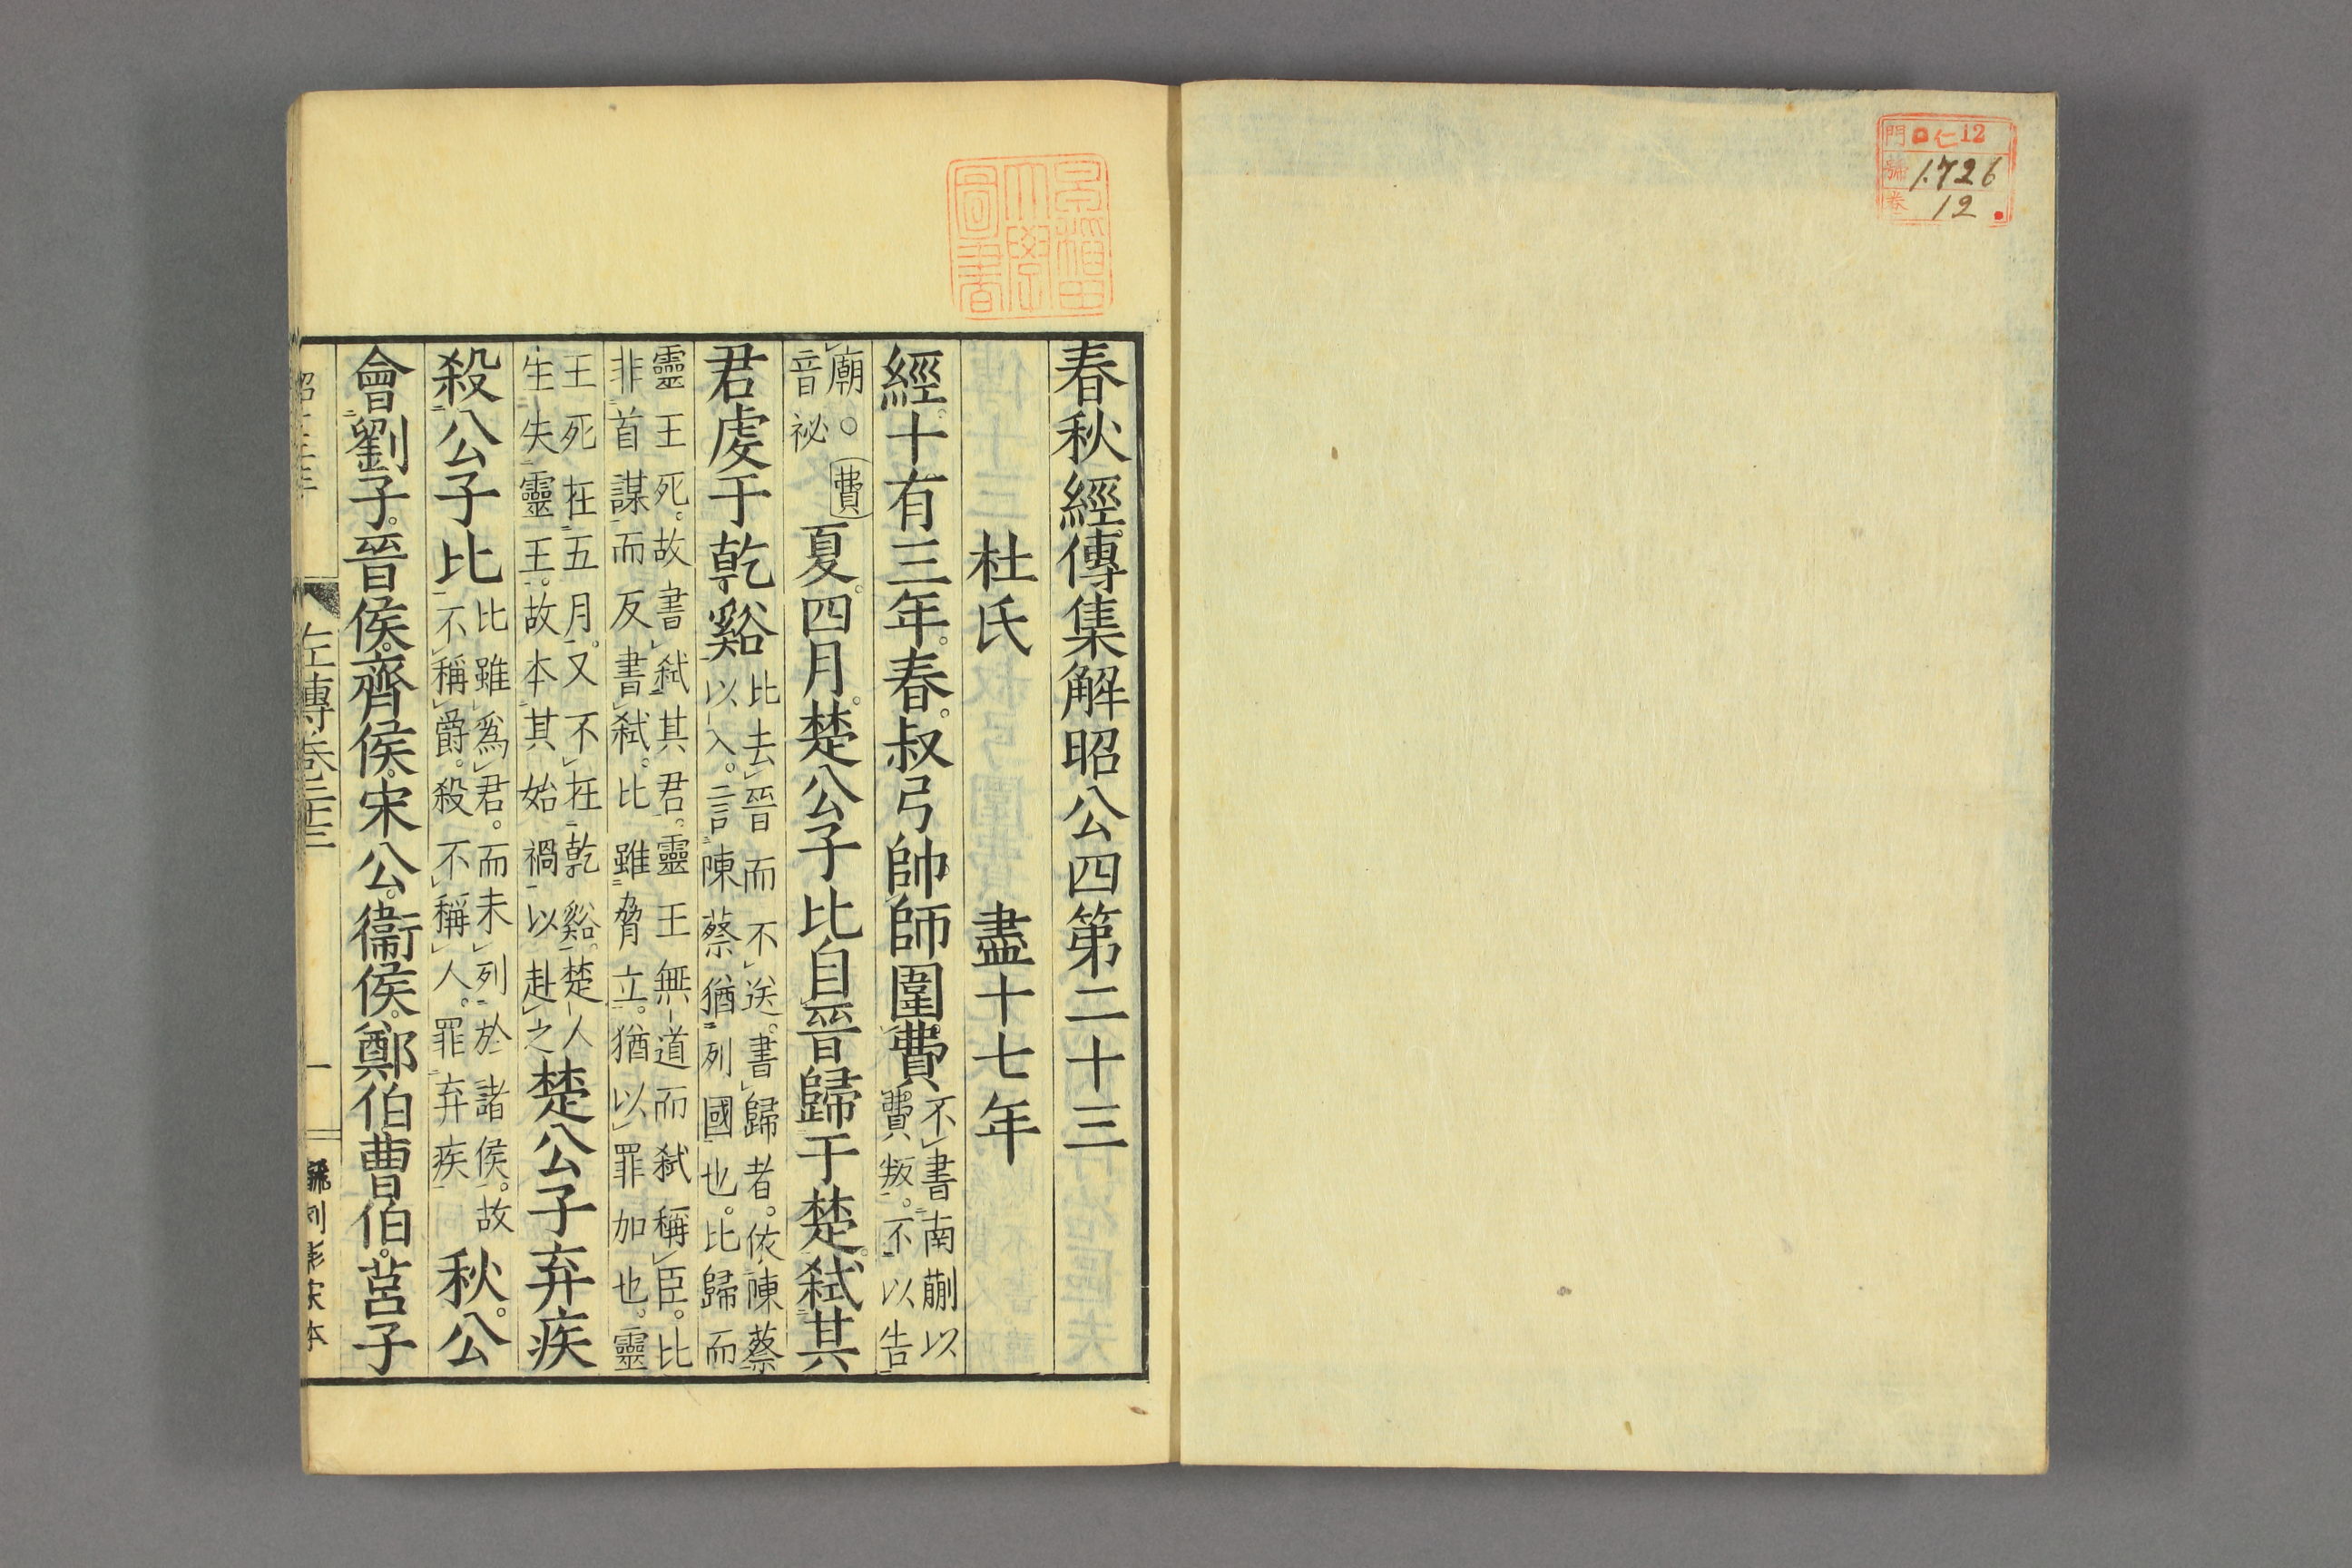 門 ロ仁12
號 1726
卷 12
早稻田
大學
圖書
春秋經傳集解昭公四第二十三
杜氏 盡十七年
經十有三年。春。叔弓帥師圍費不書南蒯以費叛。不以告
廟。○費音祕夏。四月。楚公子比自晉歸于楚。弒其
君虔于乾谿比去晉而不送。書歸者。依陳蔡以入。言陳蔡猶列國也。比歸而
靈王死。故書弒其君。靈王無道而弒稱臣。比非首謀而反書弒。比雖脅立。猶以罪加也。靈
王死在五月。又不在乾谿。楚人生失靈王。故本其始禍以赴之楚公子弃疾
殺公子比比雖爲君。而未列於諸侯。故不稱爵。殺不稱人。罪弃疾秋。公
會劉子。晉侯。齊侯。宋公。衞侯。鄭伯曹伯。莒子
左傳卷二十三
一
刻影宋本